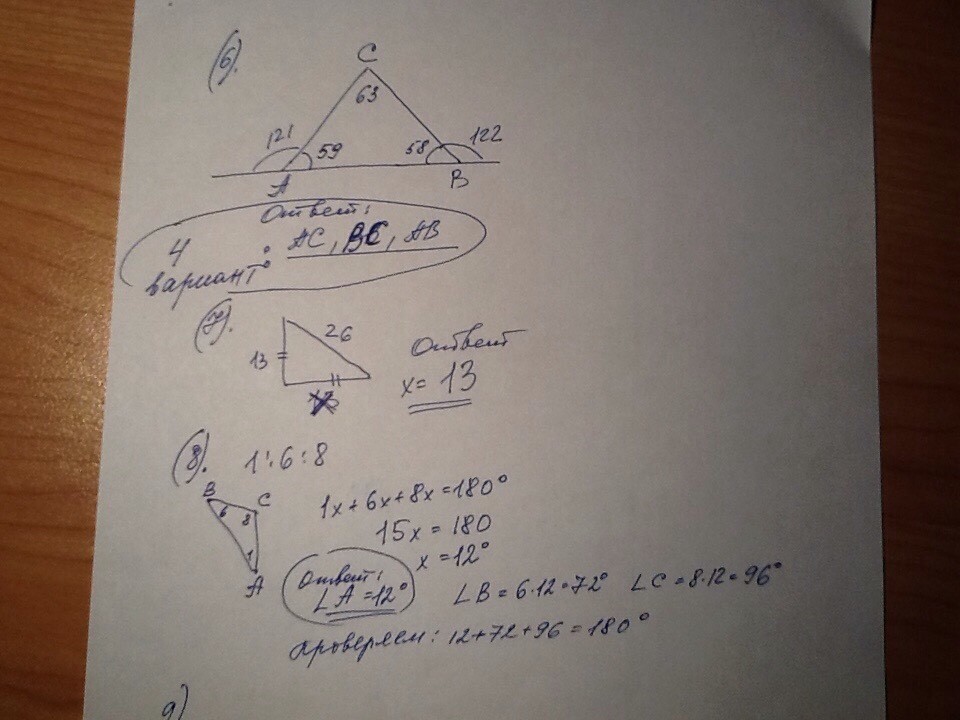 (6).
C
63
121 59 58 122
A B
Ответ:
4 вариант: AC, BC, AB
(7).
26
13
Ответ
x = 13
(8). 1:6:8
B C
6 8
1
A
1x+6x+8x=180°
15x = 180
x = 12°
Ответ:
∠A = 12°
∠B = 6·12=72° ∠C = 8·12=96°
проверяем: 12+72+96=180°
9)